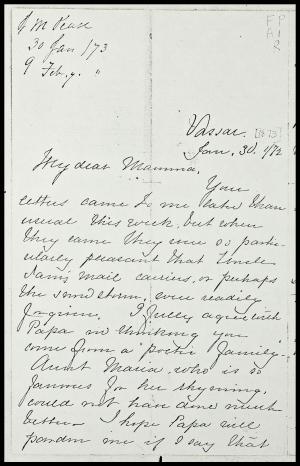 J M Pease
30 Jan /73
9 Feb.y "
F P
A 1
2
Vassar. [1873]
Jan. 30. 1/73
My dear Mamma,
Your
letters came to me later than
usual this week, but when
they came they were so partic-
ularly pleasant that Uncle
Sam's mail carriers, or perhaps
the snow storm, were readily
forgiven. I fully agree with
Papa in thinking you
come from a "poetic family."
Aunt Maria, who is so
famous for her rhyming,
could not have done much
better— I hope Papa will
pardon me if I say that